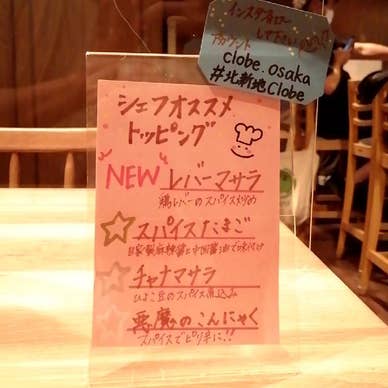 インスタフォロー
して下さい
アカウント
clobe.osaka
#北新地Clobe
シェフオススメ
トッピング
NEW レバーマサラ
鶏レバーのスパイス炒め
スパイスたまご
自家製麻辣醤と中国醤油で味付け
チャナマサラ
ひよこ豆のスパイス煮込み
悪魔のこんにゃく
スパイスでピリ辛に!!